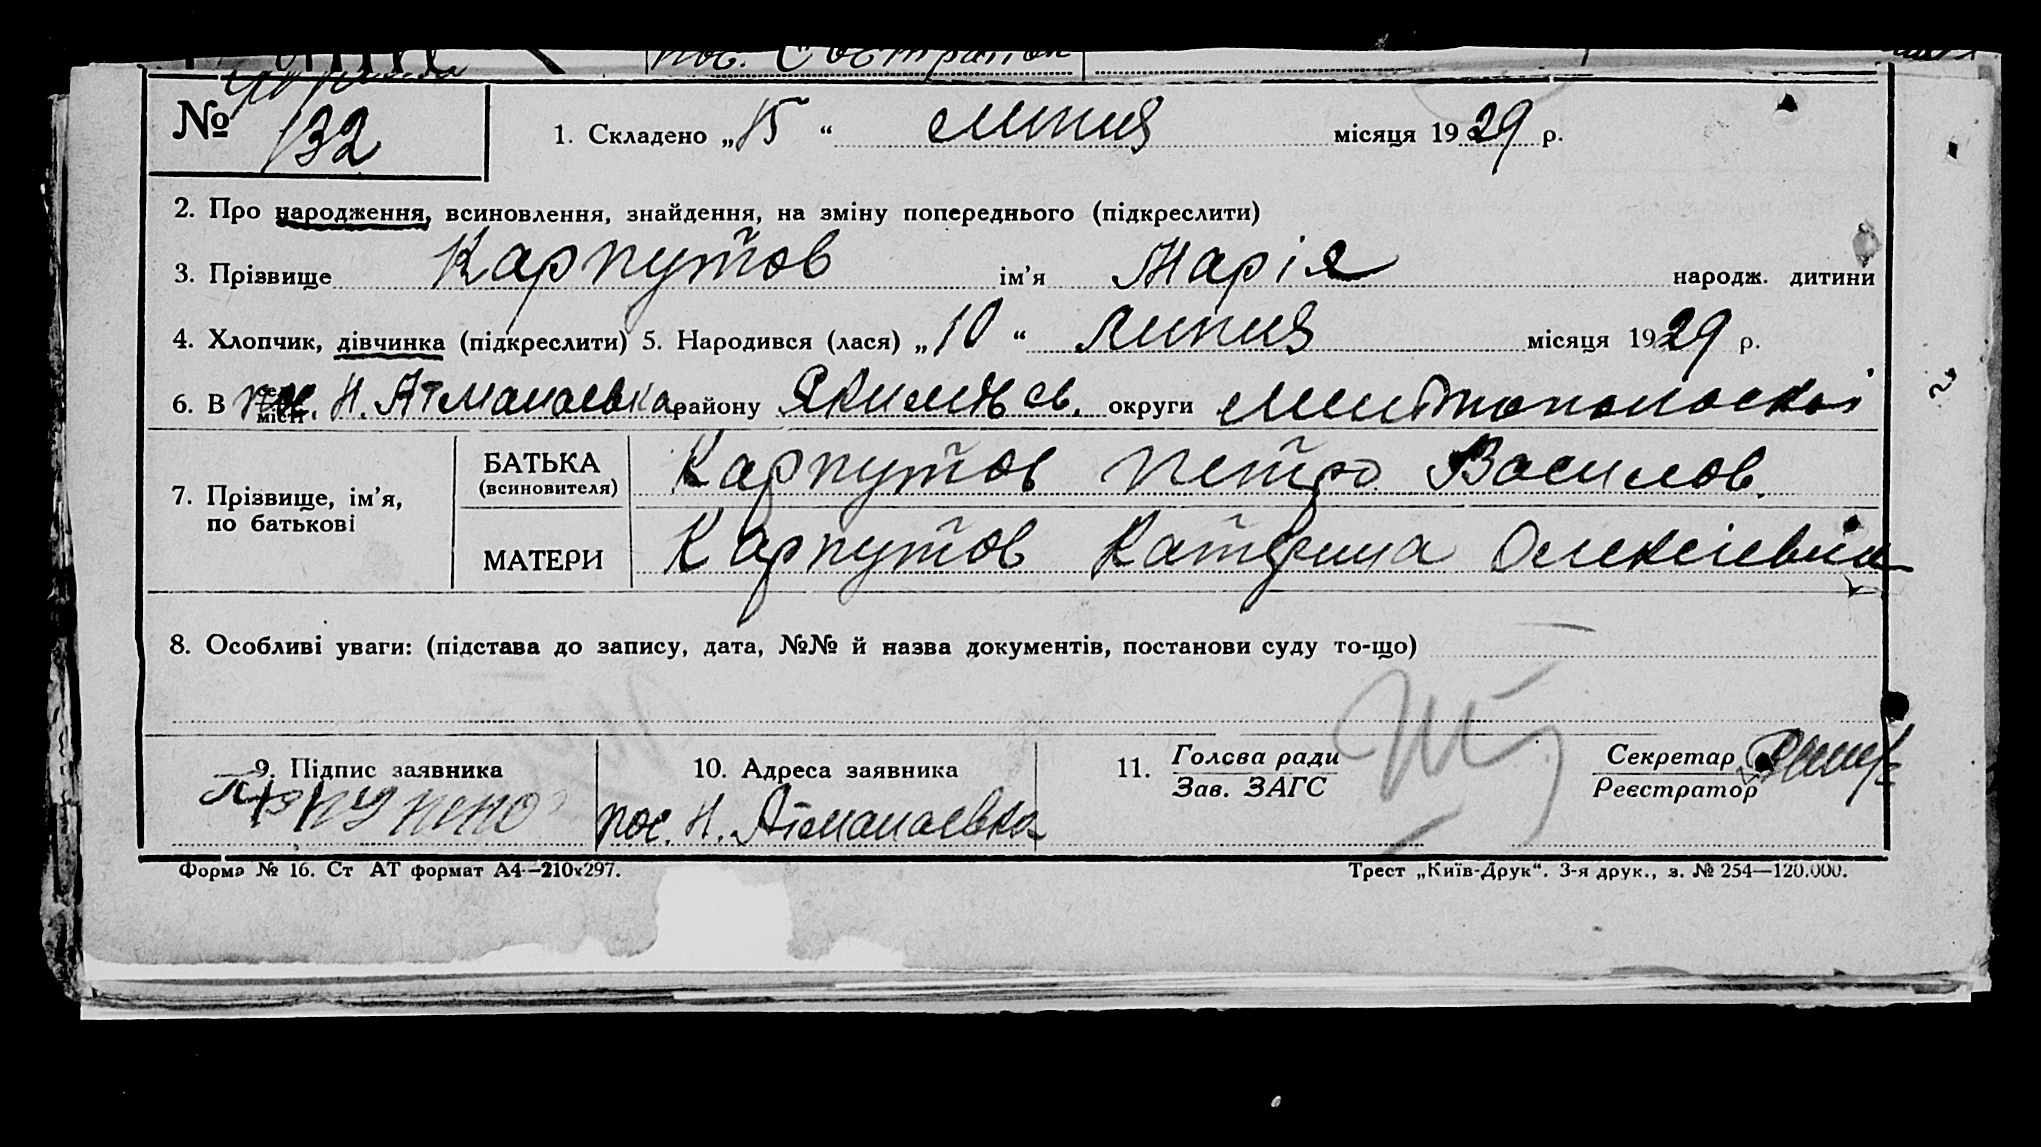 пос. Состра
№ 132
1. Складено „15“ липня місяця 1929 р.
2. Про народження, всиновлення, знайдення, на зміну попереднього (підкреслити)
3. Прізвище Карпутов ім’я Марія народж. дитини
4. Хлопчик, дівчинка (підкреслити) 5. Народився (лася) „10“ липня місяця 1929 р.
6. В пос. Н. Атманаевка району Якимів. округи
7. Прізвище, ім’я, по батькові
БАТЬКА (всиновителя) Карпутов Петро Василов.
МАТЕРИ Карпутов Катерина Олексіевна
8. Особливі уваги: (підстава до запису, дата, №№ й назва документів, постанови суду то-що)
9. Підпис заявника
10. Адреса заявника
пос. Н. Атманаевка
11. Голова ради
Зав. ЗАГС
Секретар
Реєстратор
Форма № 16. Ст АТ формат А4—210x297.
Трест „Київ-Друк“. 3-я друк., з. № 254—120.000.